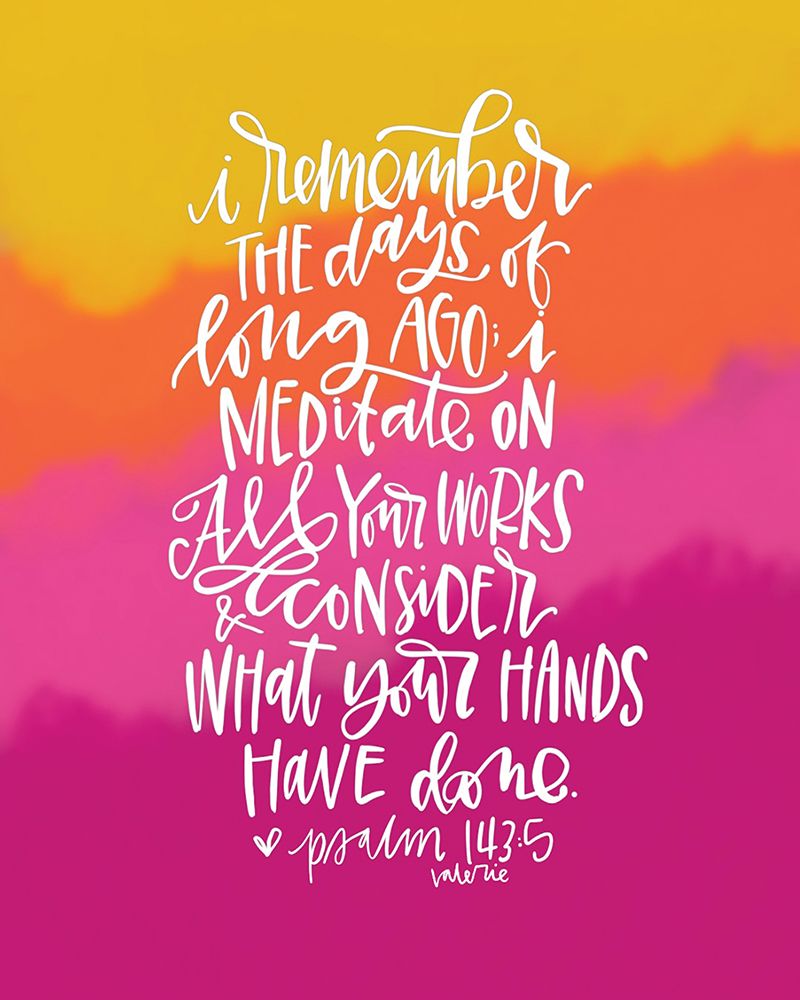 i remember
THE days of
long AGO; i
MEDitate ON
All Your WORKS
& CONSiDER
WHat your HANDS
HaVE done.
psalm 143:5
valerie